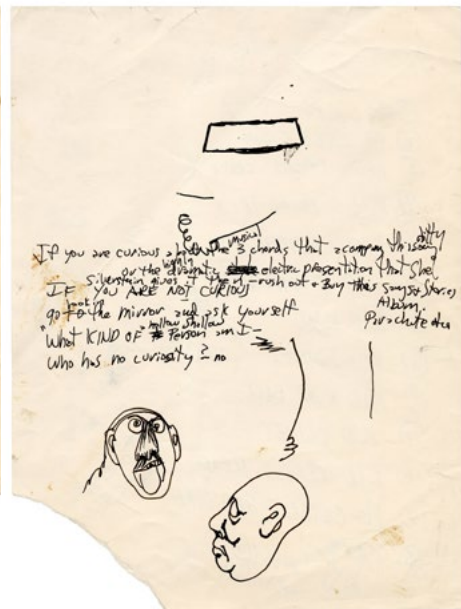 If you are curious about the 3 musical chords that accompany this ditty
or the highly dramatic electric presentation that Shel
Silverstein gives it then rush out & Buy the Songs & Stories
Album.
Parachute
IF YOU ARE NOT CURIOUS
go look to the mirror and ask yourself
"What KIND OF shallow Person am I—
Who has no curiosity? no